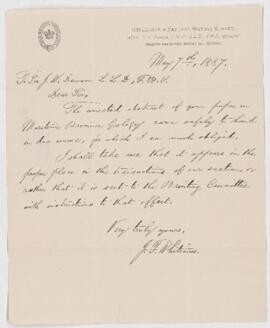 May 7th, 1887.
To Sir J. W. Dawson L.L.D., F.R.S.
Dear Sir,
The corrected abstract of your paper on
Maritime Province Geology came safely to hand
in due course, for which I am much obliged.
I shall take care that it appears in the
proper place in the transactions of our section, or
rather that it is sent to the Printing Committee
with instructions to that effect.
Very truly yours,
J. F. Whiteaves